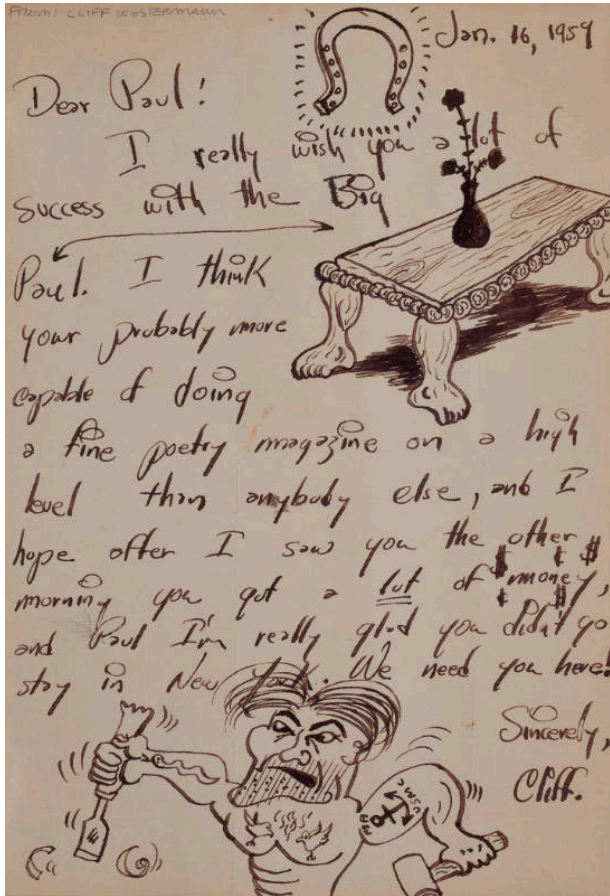 FROM: CLIFF WESTERMANN
Jan. 16, 1959
Dear Paul!
I really wish you a lot of
success with the Big
Paul. I think
your probably more
capable of doing
a fine poetry magazine on a high
level than anybody else, and I
hope after I saw you the other
morning you got a lot of money,
and Paul I'm really glad you didn't go
stay in New York. We need you here!
Sincerely,
Cliff.
USMC